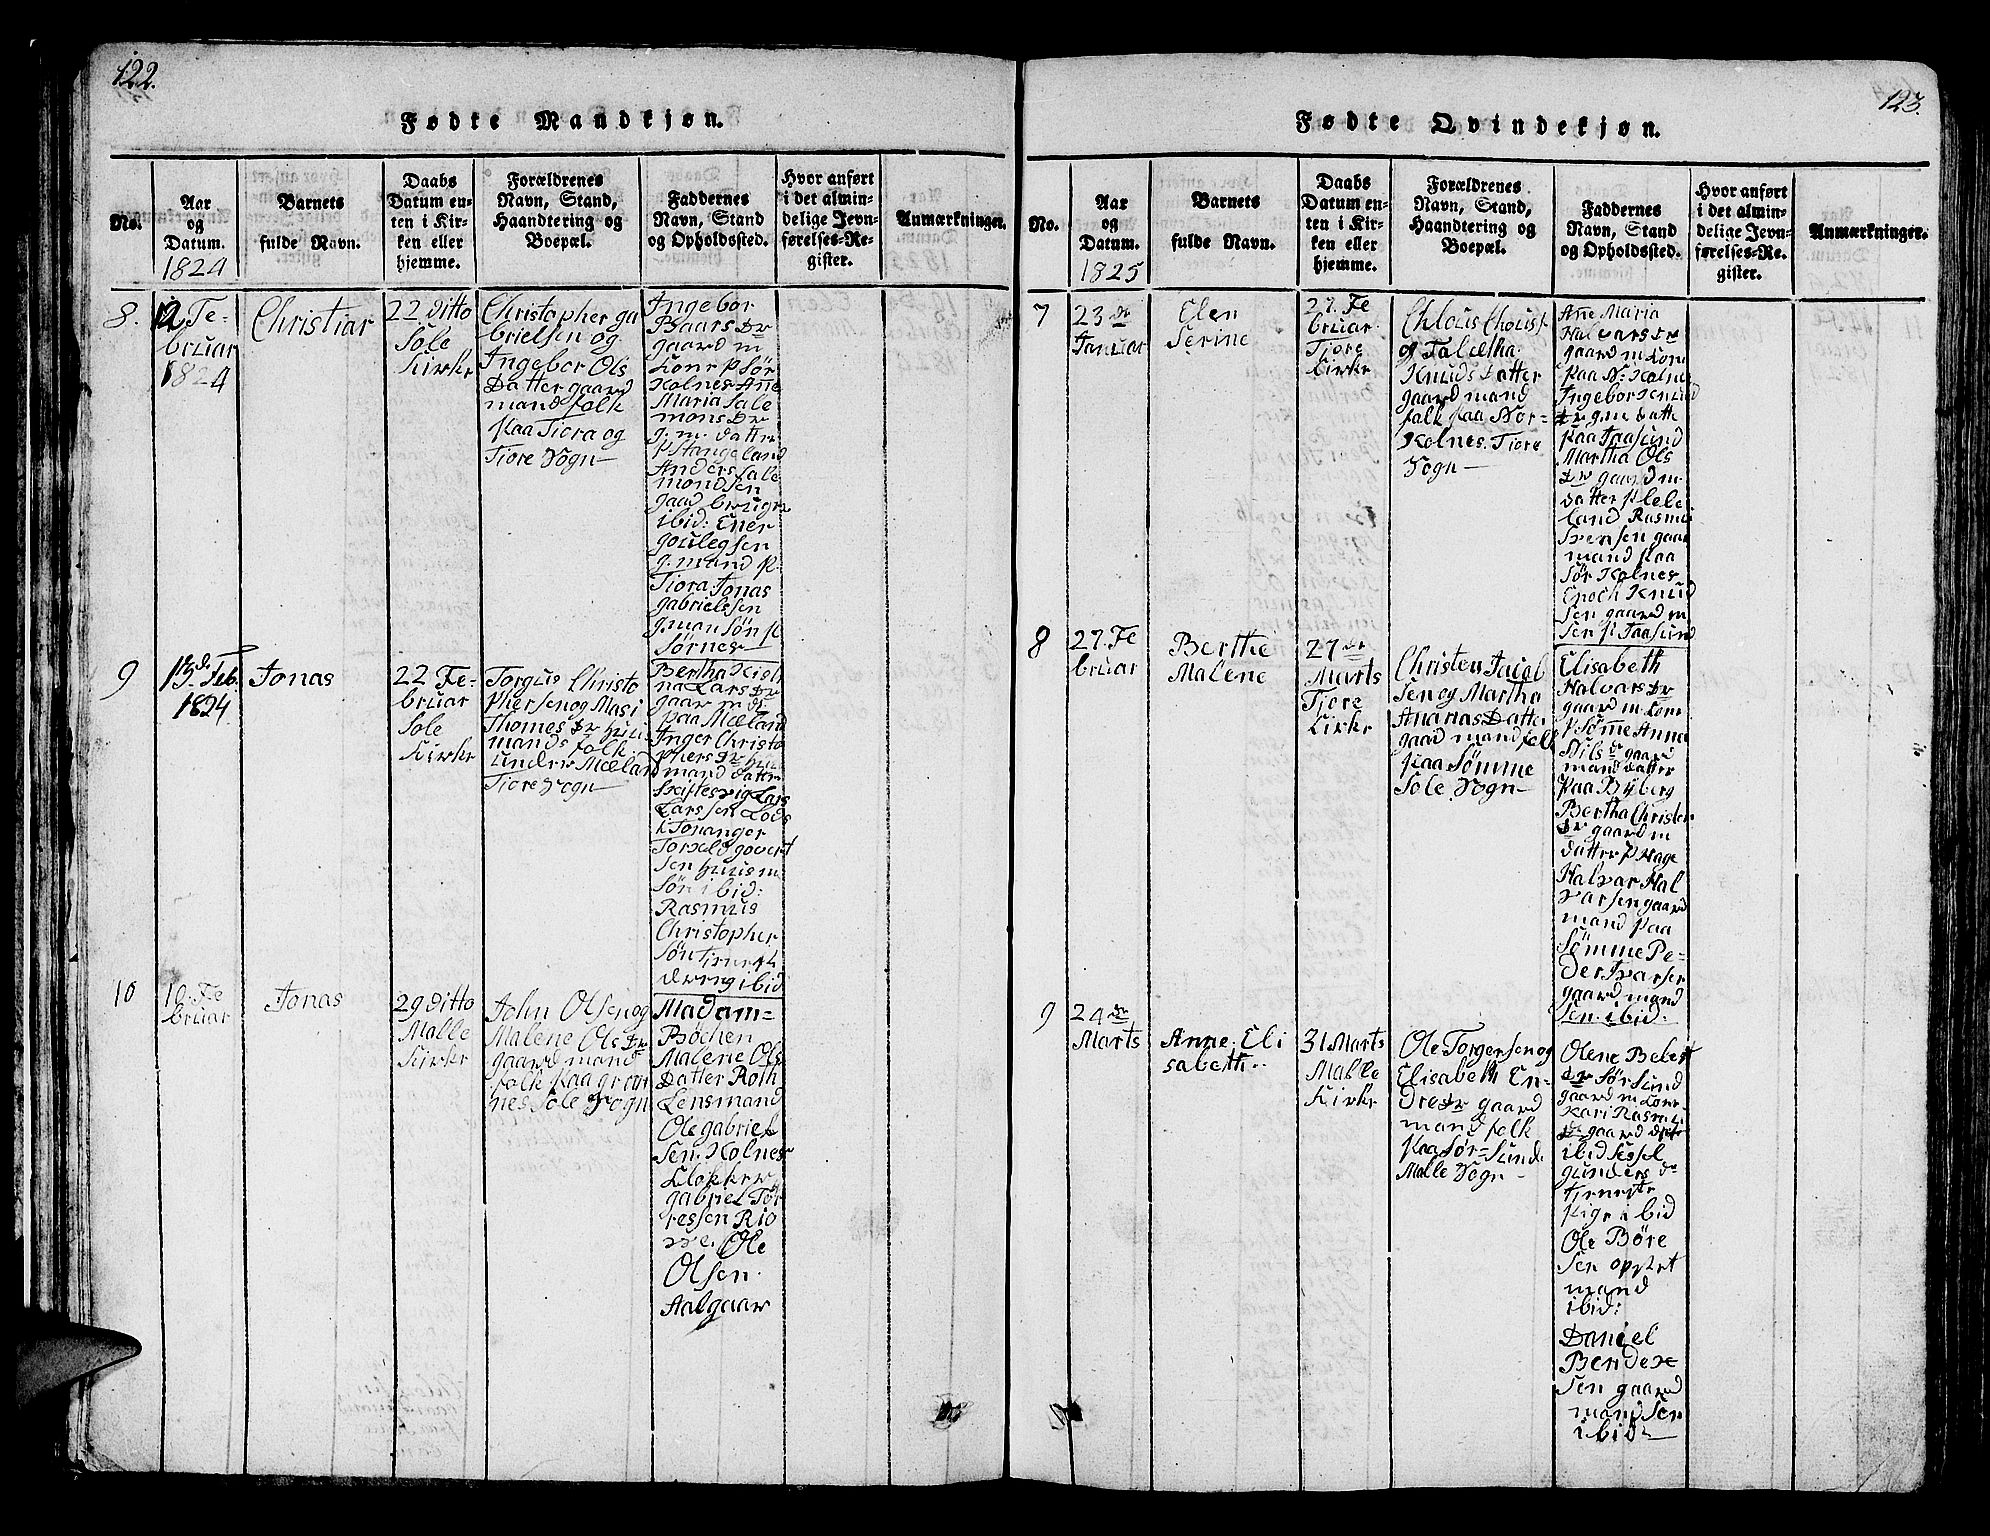 122.
Fødte Mandkjøn.
No.
Aar
og
Datum.
1824
Barnets
fulde Navn.
Daabs
Datum en-
ten i Kir-
ken eller
hjemme.
Forældrenes
Navn, Stand,
Haandtering og
Boepæl.
Faddernes
Navn, Stand
og Opholdssted.
Hvor anført
i det almin-
delige Jevn-
førelses-Re-
gister.
Anmærkninger.
8.
12 Fe-
bruar
1824
Christian
22 ditto
Sole
Kirke
Christopher ga
brielsen og
Ingebor Ols
Datter gaard
mand folk
paa Tiora og
Tiore Sogn
Ingebor
Baars Dr
gaard m
kone p Sør
Kolnes Ane
Maria Sale
mons Dr
g. m. datter
p Stangeland
Anders Sale
mondsen
gaad bruger
ibid: Ener
goulegsen
g. mand p.
Tiora Jonas
gabrielssen
g. man Søn p
Sørnes
9
13 d. Feb.
1824.
Jonas
22 Fe-
bruar
Sole
Kirke
Torgus Christo
phersen og Masi
Thomes Dr huu
mands folk
under Mæland
Tiore Sogn
Bertha Kisti
na Lars Dr
gaar m dr
paa Mæland
Inger Christo
phers Dr huu
mand datter
Skiftesvig Lars
Larssen Lods
i Tonanger
Torkeld govert
sen huus m
Søn i bid:
Rasmus
Christopher
Søn Tienest
dreng ibid
10
10 Fe
bruar
Jonas
29 ditto
Malle
Kirke
John Olsen og
Malene Ols Dr
gaard mand
folk paa gran
nes Sole Sogn
Madam=
Bøchen
Malene Ols
Datter Roth
Lensmand
Ole gabriel
sen. Kolnes
klokker
gabriel Tør
ressen Rio
Ole
Olsen.
Aalgaar
123.
Fødte Qvindekjøn.
No.
Aar
og
Datum.
1825
Barnets
fulde Navn.
Daabs
Datum en-
ten i Kir-
ken eller
hjemme.
Forældrenes
Navn, Stand,
Haandtering og
Boepæl.
Faddernes
Navn, Stand
og Opholdssted.
Hvor anført
i det almin-
delige Jevn-
førelses-Re-
gister.
Anmærkninger.
7
23 de
Januar
Elen
Serine
27. Fe
bruar.
Tiore
Kirke
Clous Clous
og Taletha
Knuds Datter
gaard mand
folk paa Nor-
Kolnes. Tiore
Sogn
Ane Maria
Halvars Dr
gaard m kone
paa N: Kolne
Ingebor Knud
Dr g.m datte
paa Jaasund
Martha Ols
Dr gaard m
datter p Lele
land Rasmus
Svensen gaar
mand paa
Sør Kolnes
Enoch Knud
sen gaard m
Sen p Jaasund
8
27. Fe
bruar
Berthe
Malene
27 de
Marts
Tjore
Kirke
Christen Jacob
sen og Martha
Ananas Datter
gaard mand folk
paa Sømme
Sole Sogn
Elisabeth
Halvars Dr
gaard m. kone
p Sømme Anna
Nils Dr gaard
mand datter
paa Byberg
Bertha Christen
Dr gaard m
datter p Hage
Halvar Hal
varsen gaard
mand paa
Sømme Pe-
der Ivarsen
gaard mand
Sen. ibid:
9
24 de
Marts
Anne. Eli
sabeth..
31 Marts
Malle
Kirke
Ole Torgersen og
Elisabeth En-
dres Dr gaard
mand folk
paa Sør=Sunde
Malle Sogn
Olene Belest
Dr Sør Sund
gaard m kone
Kari Rasmu
Dr gaard datr
ibid Sessel
gunders dr
tieneste
pige i bid
Ole Børe
Sen opsit
mand
ibid:
Daniel
Bendex
sen gaard
mand Sen
ibid